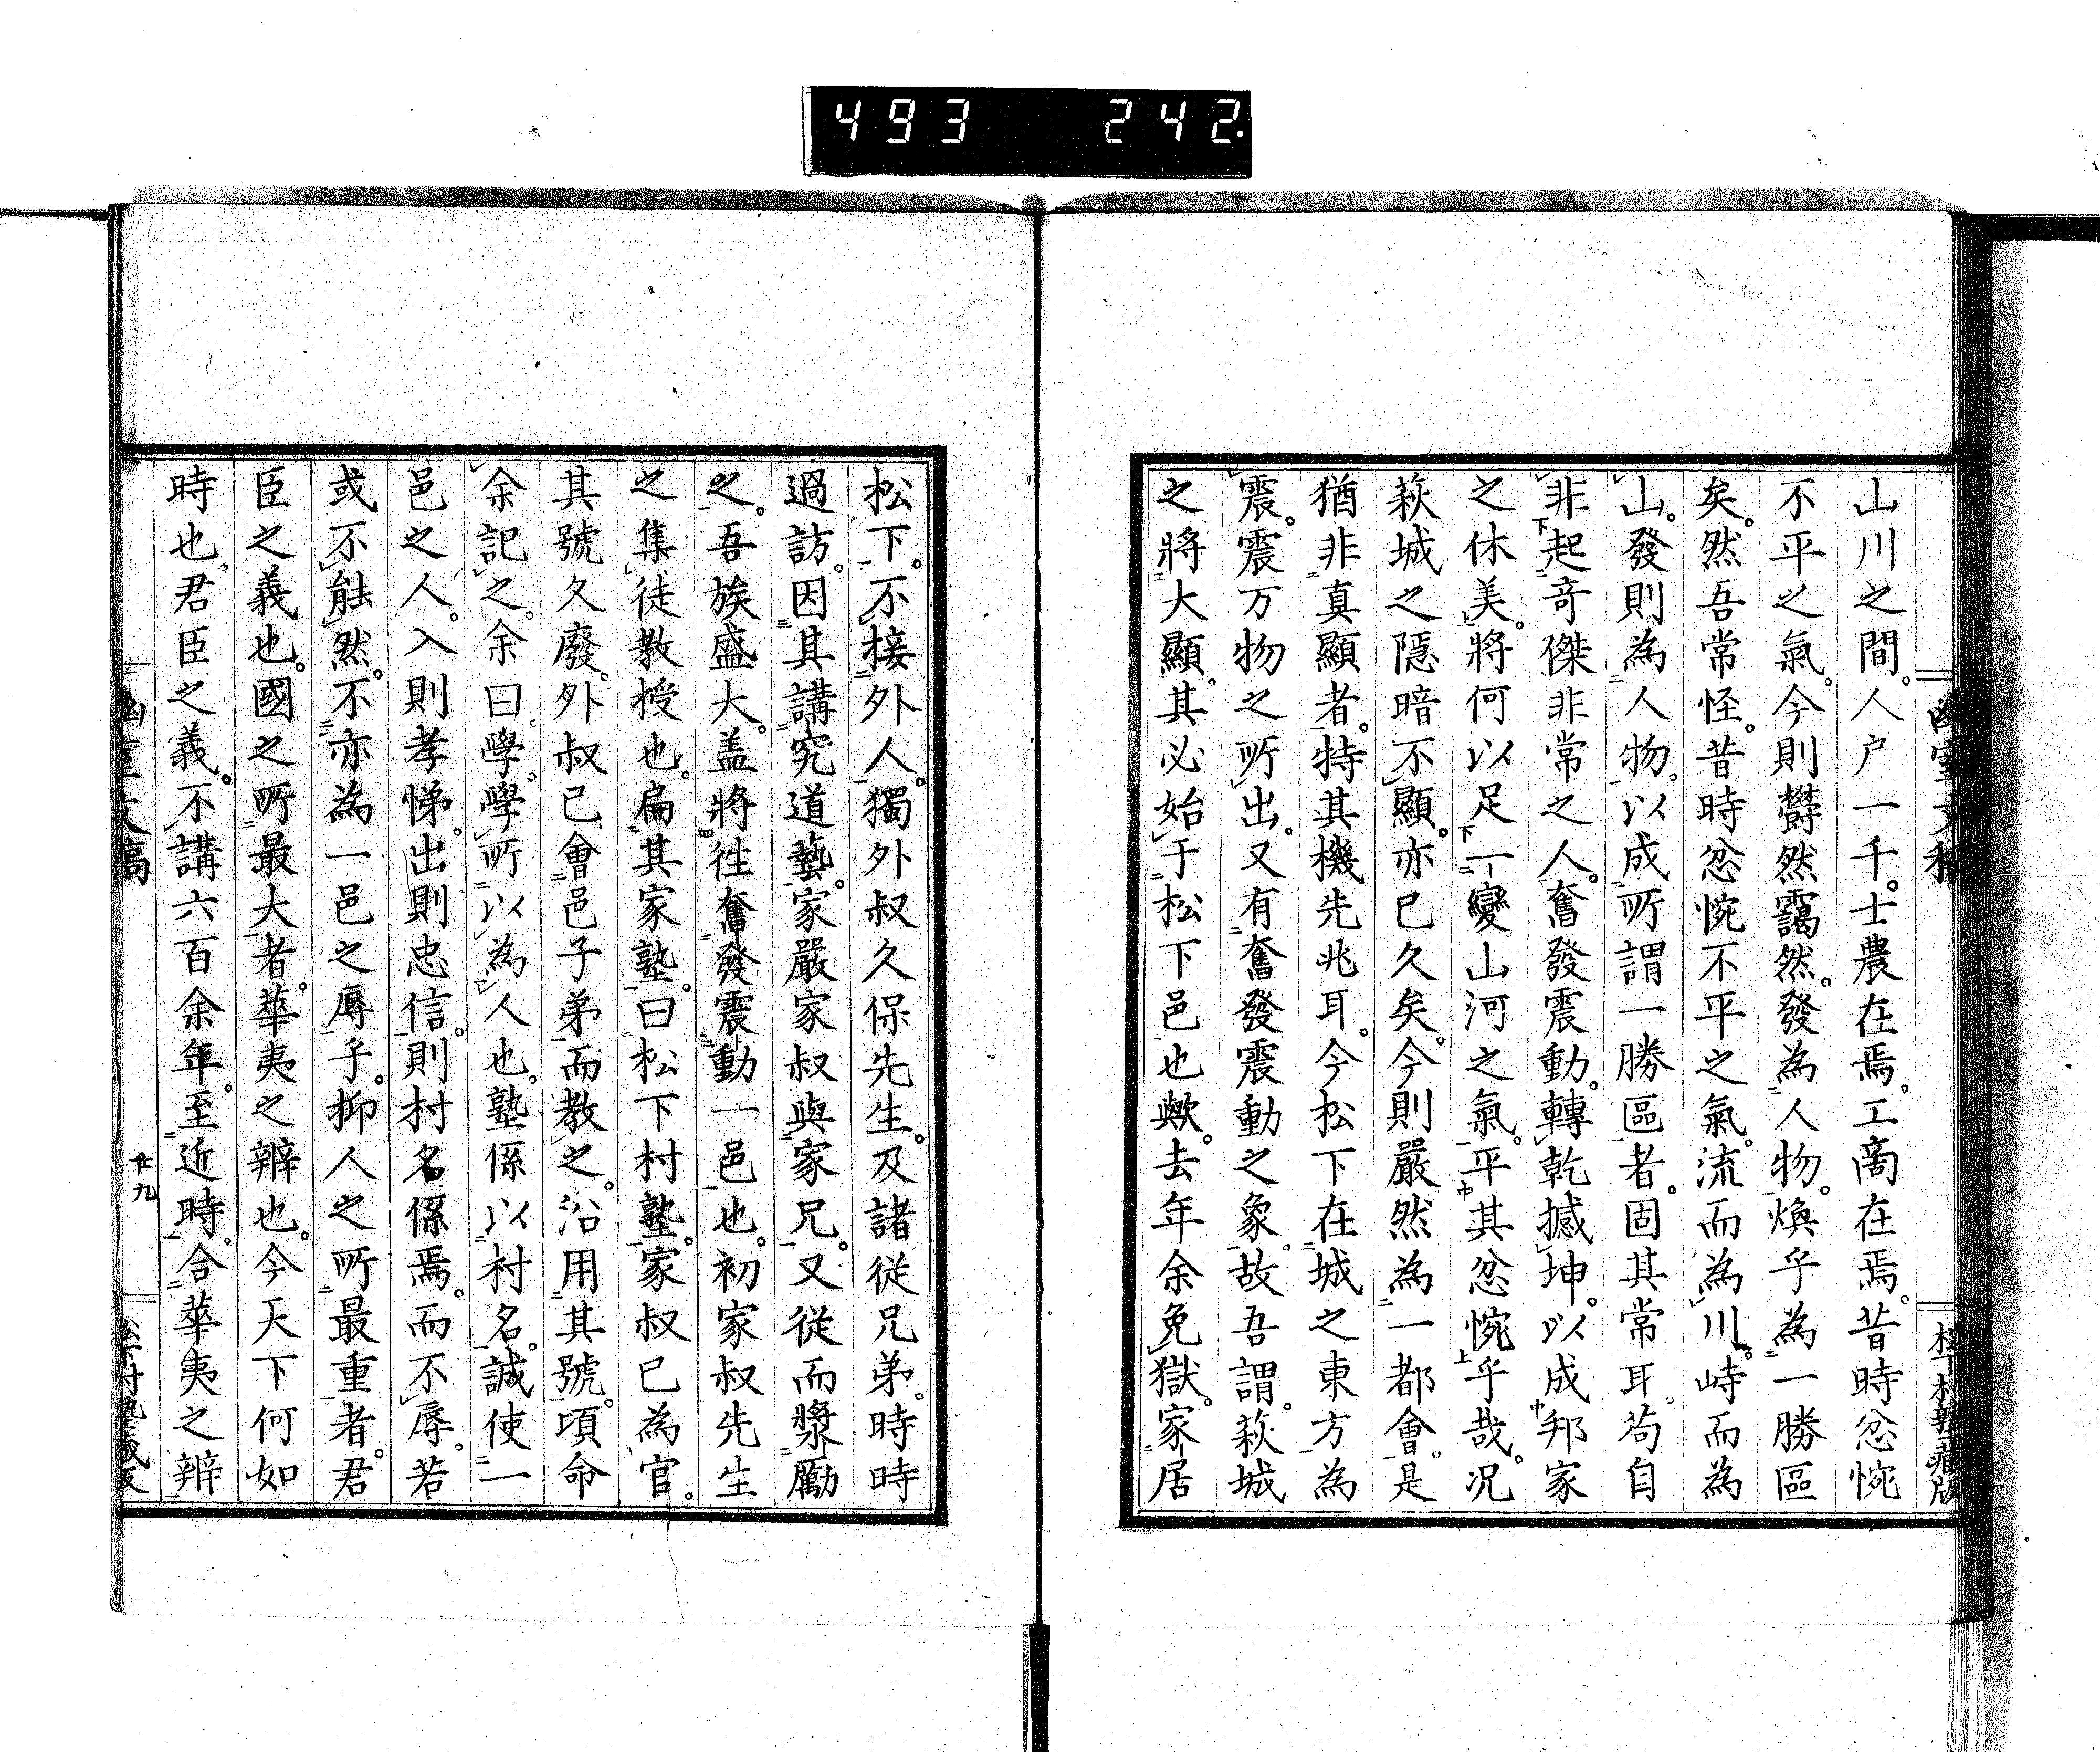 493 242
山川之間。人户一千。士農在焉。工啇在焉。昔時忿惋
不平之氣。今則欝然靄然。發為人物。煥乎為一勝區
矣。然吾常怪。昔時忿惋不平之氣。流而為川。峙而為
山。發則為人物。以成所謂一勝區者。固其常耳。苟自
非起奇傑非常之人。奮發震動。轉乾撼坤。以成邦家
之休美。將何以足一變山河之氣。平其忿惋乎哉。况
萩城之隠暗不顯。亦已久矣。今則嚴然為一都會。是
猶非真顯者。特其機先兆耳。今松下在城之東方為
震。震万物之所出。又有奮發震動之象。故吾謂。萩城
之將大顯。其必始于松下邑也歟。去年余免獄。家居
松下。不接外人。獨外叔久保先生。及諸従兄弟。時時
過訪。因其講究道藝。家嚴家叔與家兄。又従而漿勵
之。吾族盛大。盖將徃奮發震動一邑也。初家叔先生
之集徒教授也。扁其家塾。曰松下村塾。家叔已為官。
其號久廢。外叔已會邑子弟而教之。沿用其號。頃命
余記之。余曰。學。學所以為人也。塾係以村名。誠使一
邑之人。入則孝悌。出則忠信。則村名係焉。而不辱。若
或不能然。不亦為一邑之辱乎。抑人之所最重者。君
臣之義也。國之所最大者。華夷之辨也。今天下何如
時也。君臣之義。不講六百余年。至近時。合華夷之辨
幽室文稿
廿九
松下村塾藏版